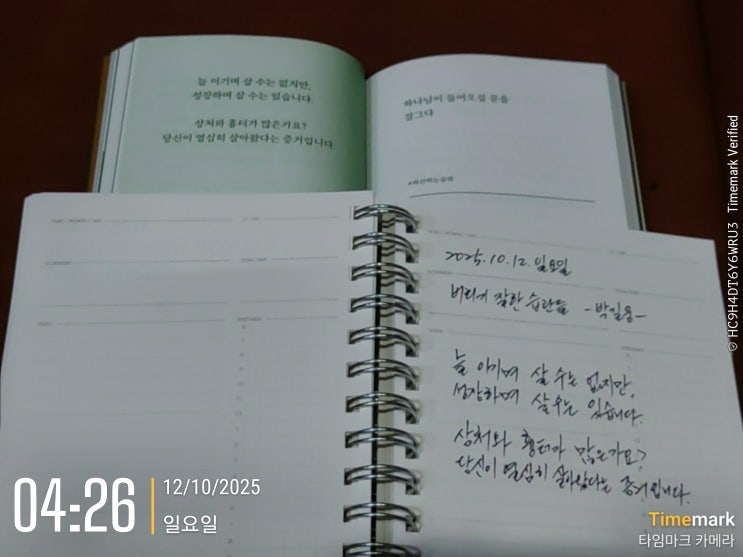 늘 이기며 살 수는 없지만,
성장하며 살 수는 있습니다.
상처와 흉터가 많은가요?
당신이 열심히 살아왔다는 증거입니다
하나님이 들어오실 문을
잠그다
2025.10.12.일요일
버리기 잘한 습관들 -박길웅-
늘 이기며 살 수는 없지만,
성장하며 살 수는 있습니다.
상처와 흉터가 많은가요?
당신이 열심히 살아왔다는 증거입니다.
04:26
12/10/2025
일요일
Timemark
타임마크 카메라
© HC9H4DT6Y6WRU3 Timemark Verified